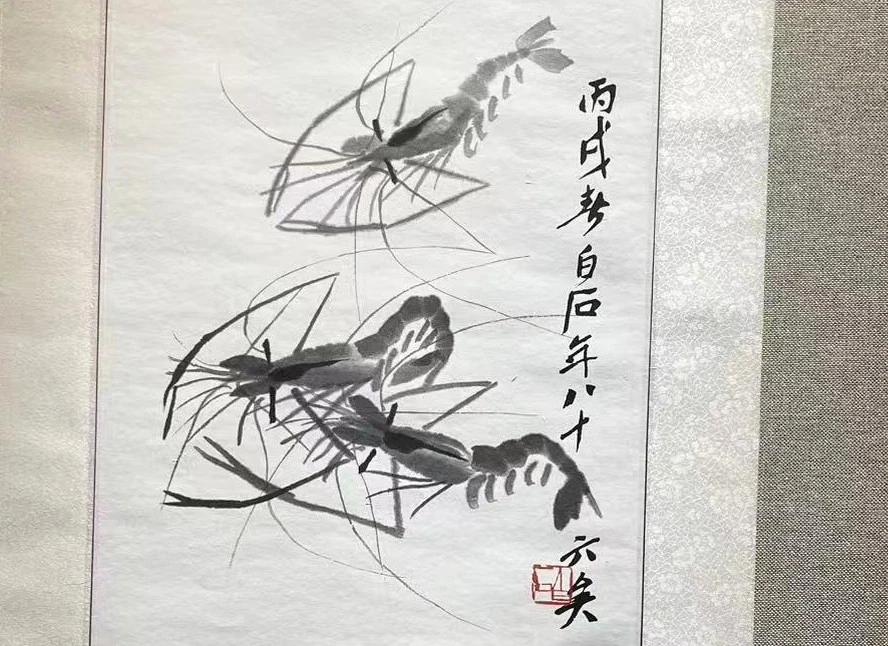 丙戌春白石年八十六矣